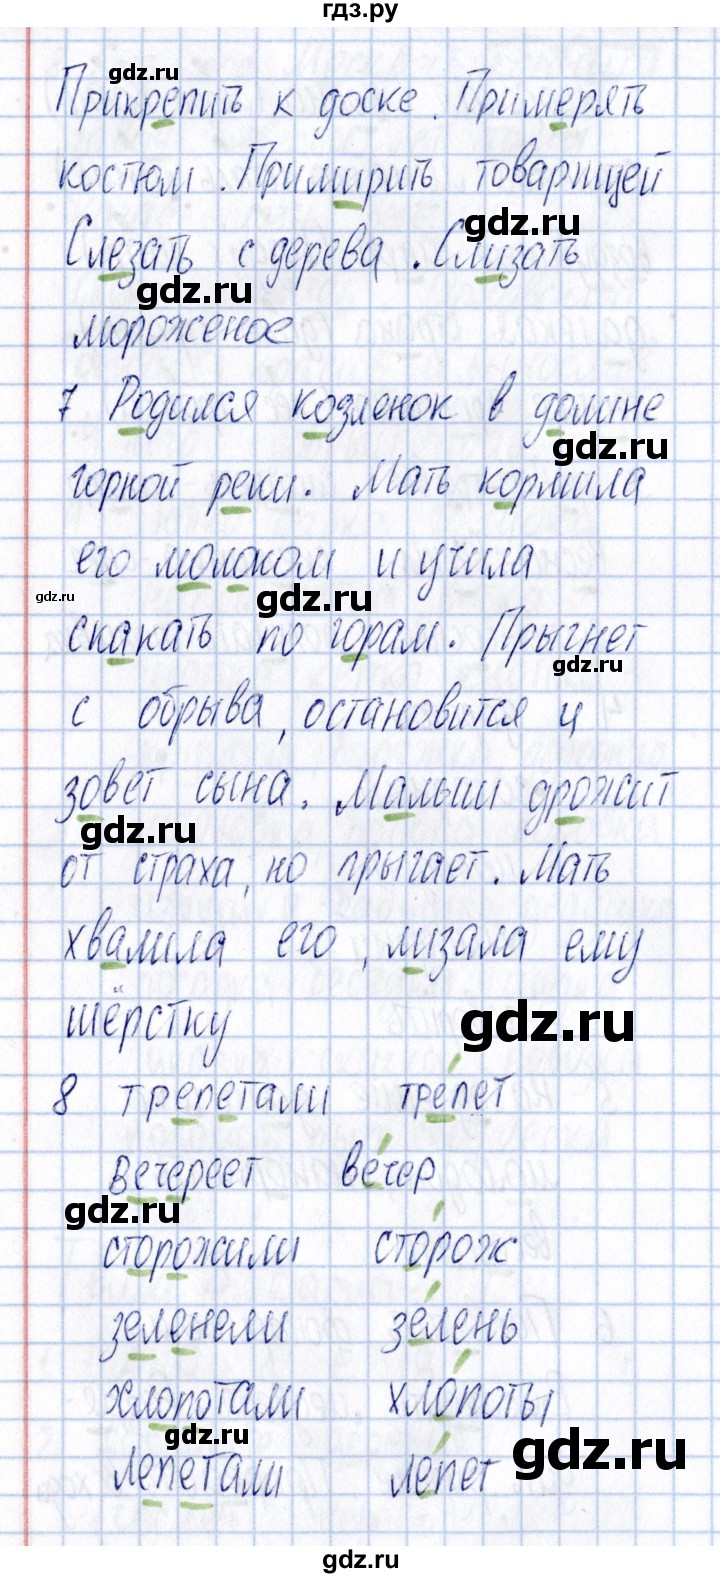 гдз.ру
gdz.ru
Прикрепить к доске. Примерять
костюм. Примирить товарищей
gdz.ru
Слезать с дерева. Слизать
gdz.ru
мороженое
7 Родился козленок в долине
gdz.ru
горной реки. Мать кормила
его молоком и учила
gdz.ru
gdz.ru
скакать по горам. Прыгнет
gdz.ru
с обрыва, остановится и
зовет сына. Малыш дрожит
gdz.ru
от страха, но прыгает. Мать
хвалила его, лизала ему
шёрстку
gdz.ru
8 трепетали трéпет
вечереет вéчер
gdz.ru
сторожили стóрож
зеленели зéлень
хлопотали хлóпоты
gdz.ru
gdz.ru
лепетали лéпет
gdz.ru